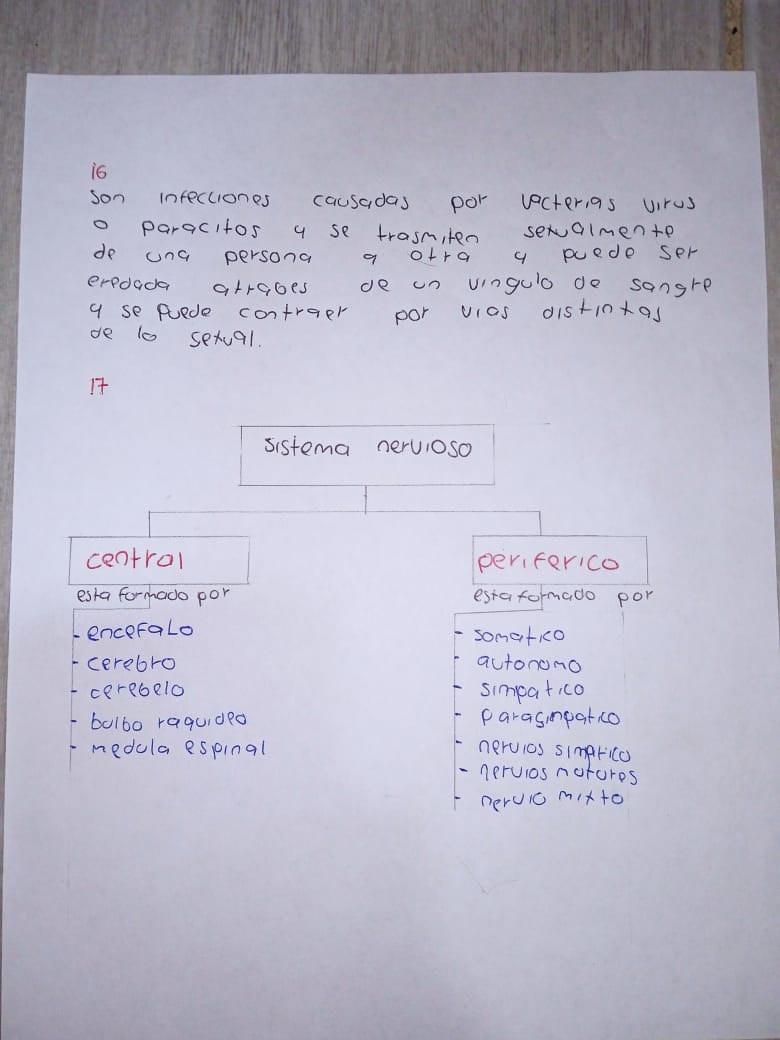 16
Son infecciones causadas por vacterias virus
o paracitos y se trasmiten sexualmente
de una persona a otra y puede ser
eredada atrabes de un vingulo de sangre
y se puede contraer por vias distintas
de lo sexual.
17
sistema nervioso
central
esta formado por
- encefalo
- cerebro
- cerebelo
- bulbo raquideo
- medula espinal
periferico
esta formado por
- somatico
- autonomo
- simpatico
- parasimpatico
- nervios simptico
- nervios motores
- nervio mixto